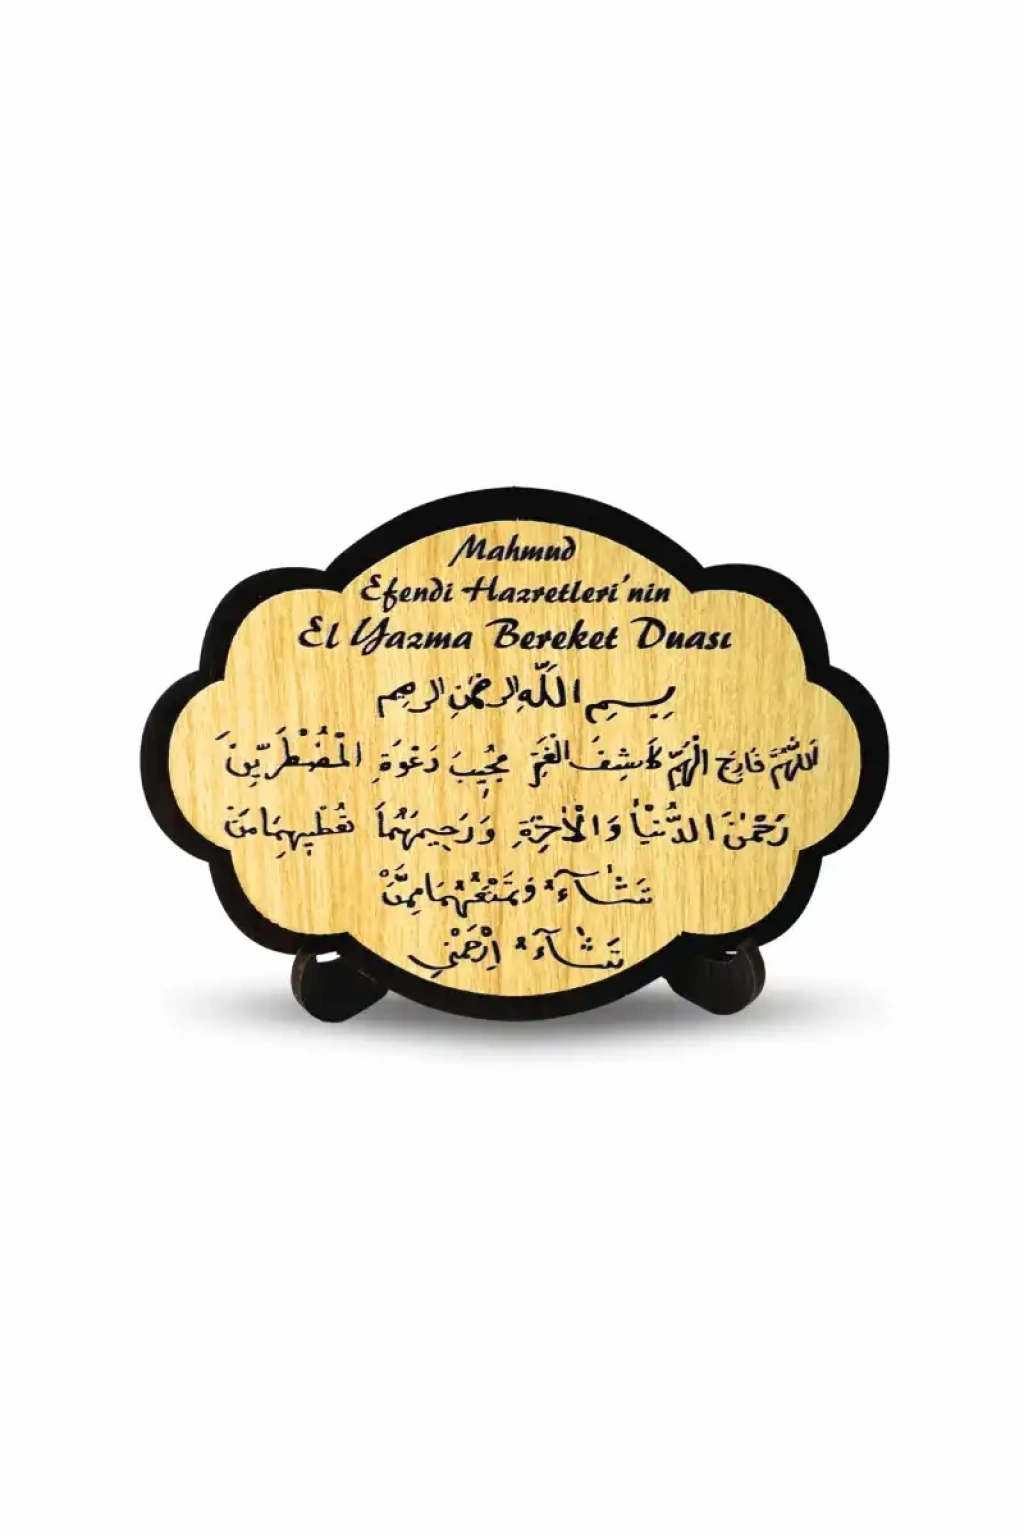 Mahmud
Efendi Hazretleri'nin
El Yazma Bereket Duası
بِسْمِ اللَّهِ الرحْمٰنِ الرحِيم
اَللّٰهُمَّ فَارِجَ الْهَمِّ كَاشِفَ الْغَمِّ مُجِيبَ دَعْوَةِ الْمُضْطَرِّينَ
رَحْمٰنَ الدُّنْيَا وَالْاٰخِرَةِ وَرَحِيمَهُمَا تُعْطِيهِمَا مَنْ
تَشَآءُ وَتَمْنَعُهُمَا مِمَّنْ
تَشَآءُ اِرْحَمْنِي